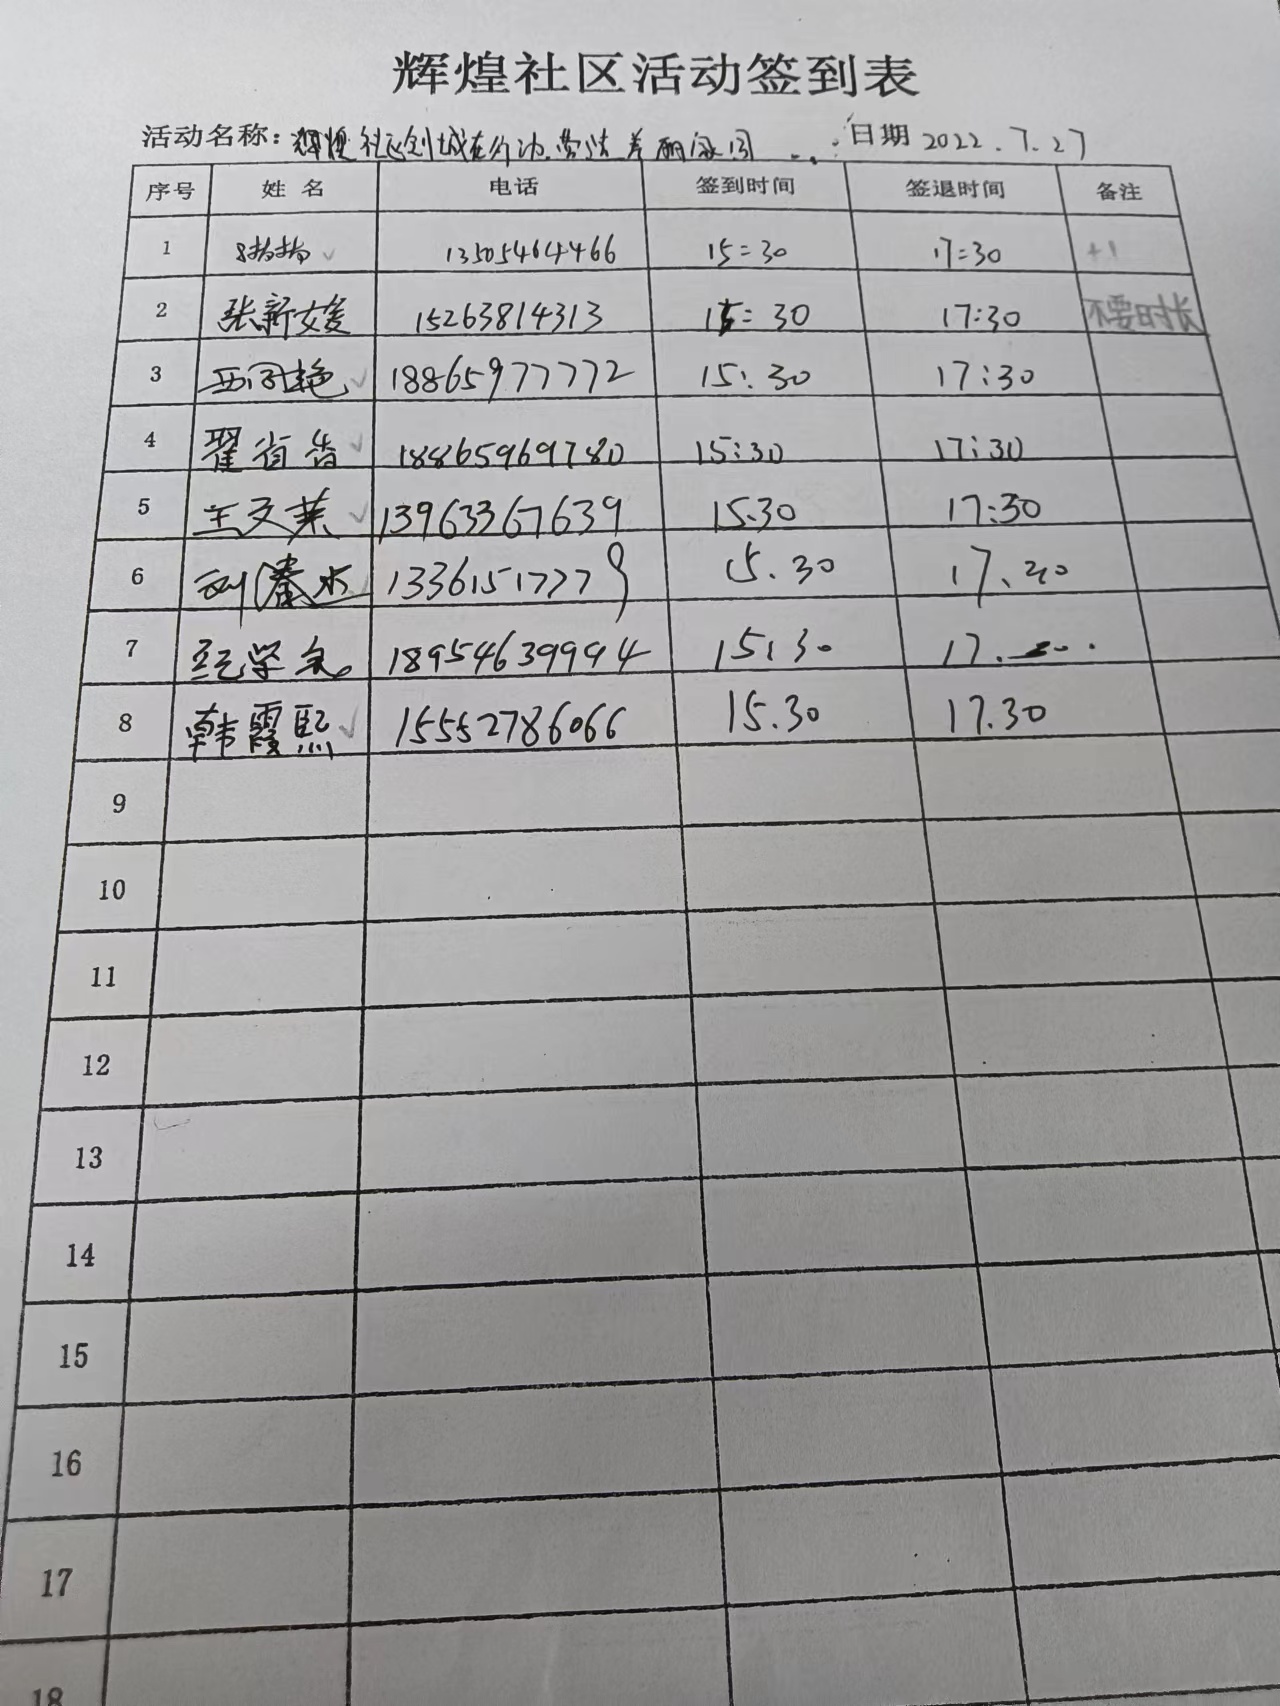 辉煌社区活动签到表
活动名称：辉煌社区创城在行动 日期 2022.7.27
序号 姓名 电话 签到时间 签退时间 备注
1 13505464466 15:30 17:30 +1
2 张新媛 15263814313 15:30 17:30 不要时长
3 18865977772 15:30 17:30
4 翟省 18865969780 15:30 17:30
5 王文英 13963367639 15.30 17:30
6 刘 13361517779 15.30 17.30
7 学 18954639994 15:30 17.
8 韩霞熙 15552786066 15.30 17.30
9
10
11
12
13
14
15
16
17
18